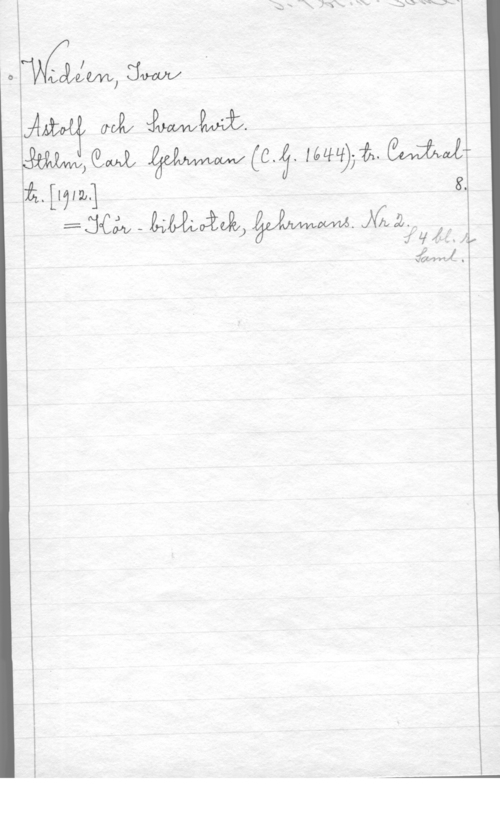 Widéen, Ivar
Astolf och Svanhvit.
Sthlm, Carl Gehrman (C.G. 1644); tr. Central-
tr. [1912.] 8.
= Kör-bibliotek, Gehrmans. Nr 2.
4 bl. r
Saml.